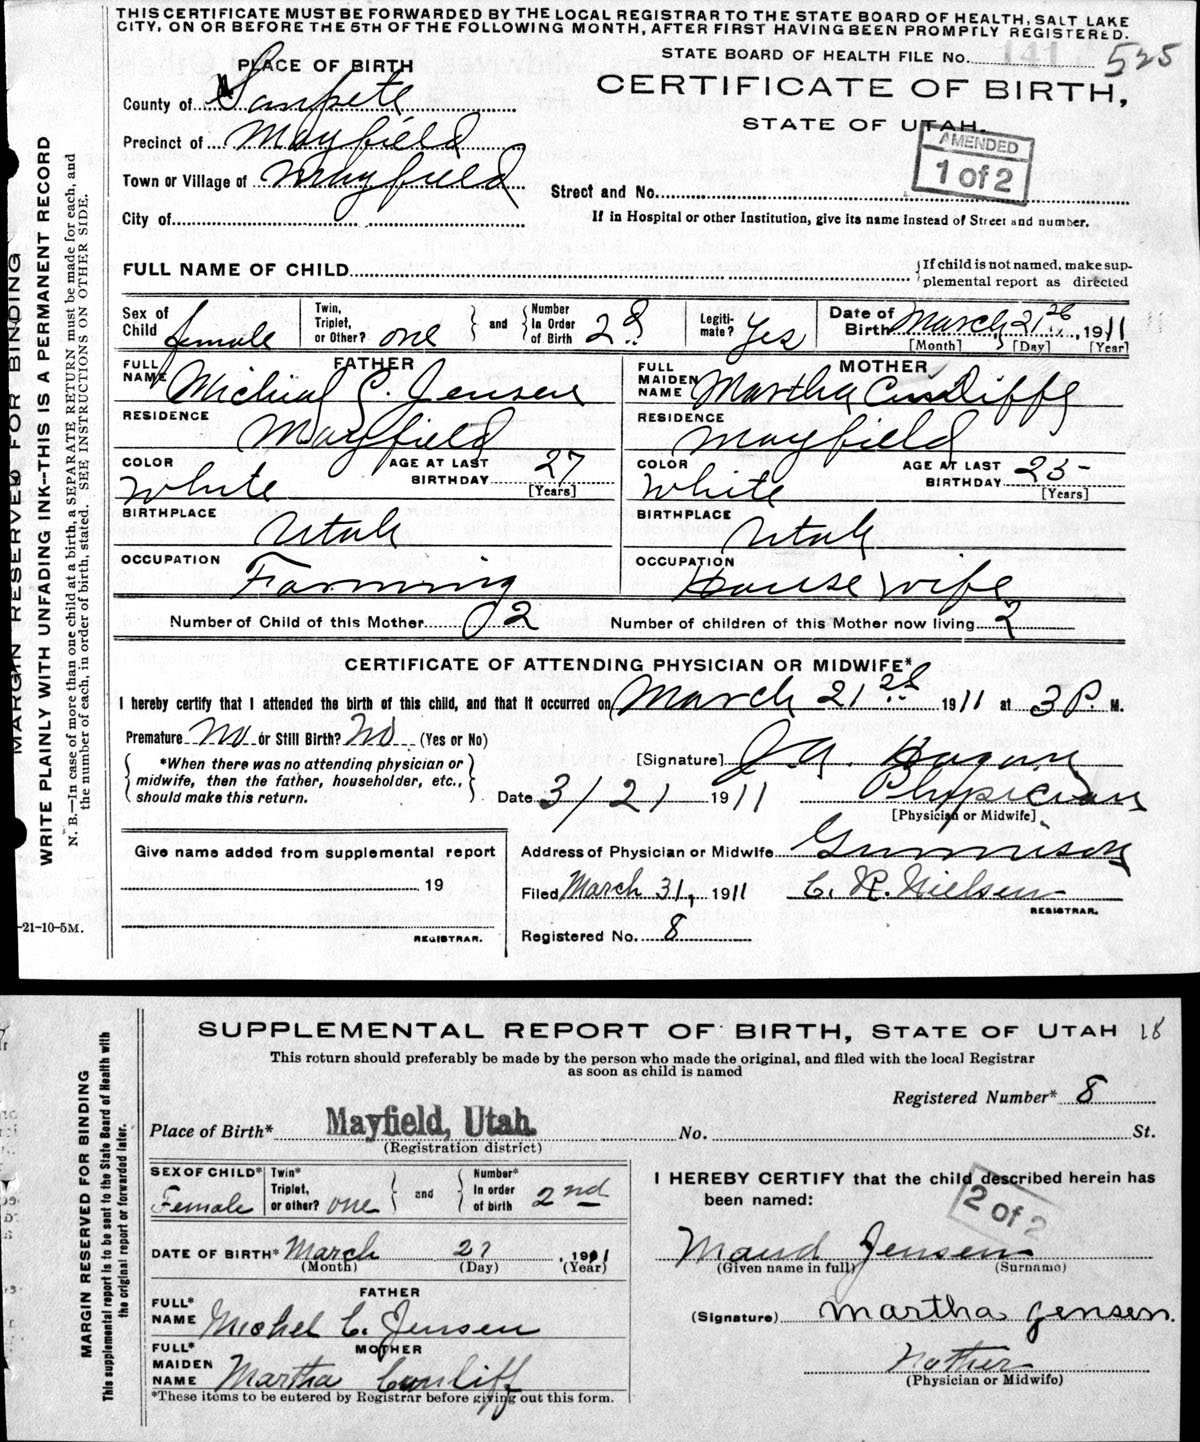 THIS CERTIFICATE MUST BE FORWARDED BY THE LOCAL REGISTRAR TO THE STATE BOARD OF HEALTH, SALT LAKE
CITY, ON OR BEFORE THE 5TH OF THE FOLLOWING MONTH, AFTER FIRST HAVING BEEN PROMPTLY REGISTERED.
STATE BOARD OF HEALTH FILE No. 141 525
PLACE OF BIRTH
CERTIFICATE OF BIRTH,
STATE OF UTAH.
AMENDED
1 of 2
County of Sanpete
Precinct of Mayfield
Town or Village of Mayfield
Street and No.
City of
If in Hospital or other Institution, give its name instead of Street and number.
FULL NAME OF CHILD
If child is not named, make sup-
plemental report as directed
Sex of Child female
Twin, Triplet, or Other? one
and
Number In Order of Birth 2d
Legiti- mate? Yes
Date of Birth March 21, 1911
[Month] [Day] [Year]
FATHER
FULL NAME Michial C. Jensen
RESIDENCE
Mayfield
COLOR White
AGE AT LAST BIRTHDAY 27
[Years]
BIRTHPLACE
Utah
OCCUPATION
Farming
MOTHER
FULL MAIDEN NAME Martha Cunliffe
RESIDENCE
Mayfield
COLOR White
AGE AT LAST BIRTHDAY 25
[Years]
BIRTHPLACE
Utah
OCCUPATION
House wife
Number of Child of this Mother 2
Number of children of this Mother now living 2
CERTIFICATE OF ATTENDING PHYSICIAN OR MIDWIFE*
I hereby certify that I attended the birth of this child, and that it occurred on March 21 1911 at 3 P. M.
Premature No or Still Birth? No (Yes or No)
*When there was no attending physician or
midwife, then the father, householder, etc.,
should make this return.
[Signature] J. A. Hagan
Date 3/21 1911 Physician
[Physician or Midwife]
Give name added from supplemental report
19
REGISTRAR.
Address of Physician or Midwife Gunnison
Filed March 31, 1911 C. R. Nielsen
REGISTRAR.
Registered No. 8
MARGIN RESERVED FOR BINDING
WRITE PLAINLY WITH UNFADING INK—THIS IS A PERMANENT RECORD
N. B.—In case of more than one child at a birth, a SEPARATE RETURN must be made for each, and
the number of each, in order of birth, stated. SEE INSTRUCTIONS ON OTHER SIDE.
-21-10-5M.
SUPPLEMENTAL REPORT OF BIRTH, STATE OF UTAH 18
This return should preferably be made by the person who made the original, and filed with the local Registrar
as soon as child is named
Registered Number* 8
Place of Birth* Mayfield, Utah. No. St.
(Registration district)
SEX OF CHILD* Female
Twin* Triplet, or other? one
and
Number* In order of birth 2nd
DATE OF BIRTH* March 21, 1911
(Month) (Day) (Year)
FATHER
FULL* NAME Michel C. Jensen
MOTHER
FULL* MAIDEN NAME Martha Cunliff
*These items to be entered by Registrar before giving out this form.
I HEREBY CERTIFY that the child described herein has
been named:
2 of 2
Maud Jensen
(Given name in full) (Surname)
(Signature) Martha Jensen.
Mother
(Physician or Midwife)
MARGIN RESERVED FOR BINDING
This supplemental report is to be sent to the State Board of Health with
the original report or forwarded later.